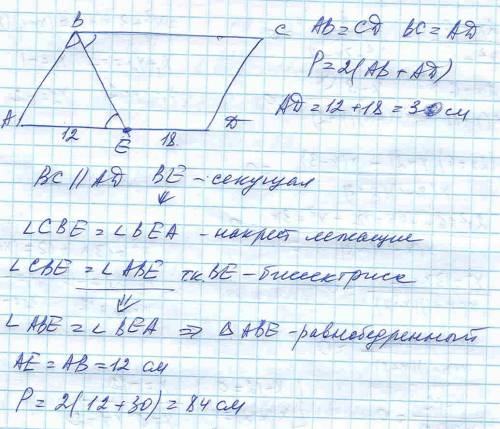 B
C
A
12
E
18
D
AB = CD BC = AD
P = 2(AB + AD)
AD = 12 + 18 = 30 см
BC || AD BE - секущая
⇓
∠CBE = ∠BEA - накрест лежащие
∠CBE = ∠ABE т.к. BE - биссектриса
⇓
∠ABE = ∠BEA ⇒ △ABE - равнобедренный
AE = AB = 12 см
P = 2(12 + 30) = 84 см